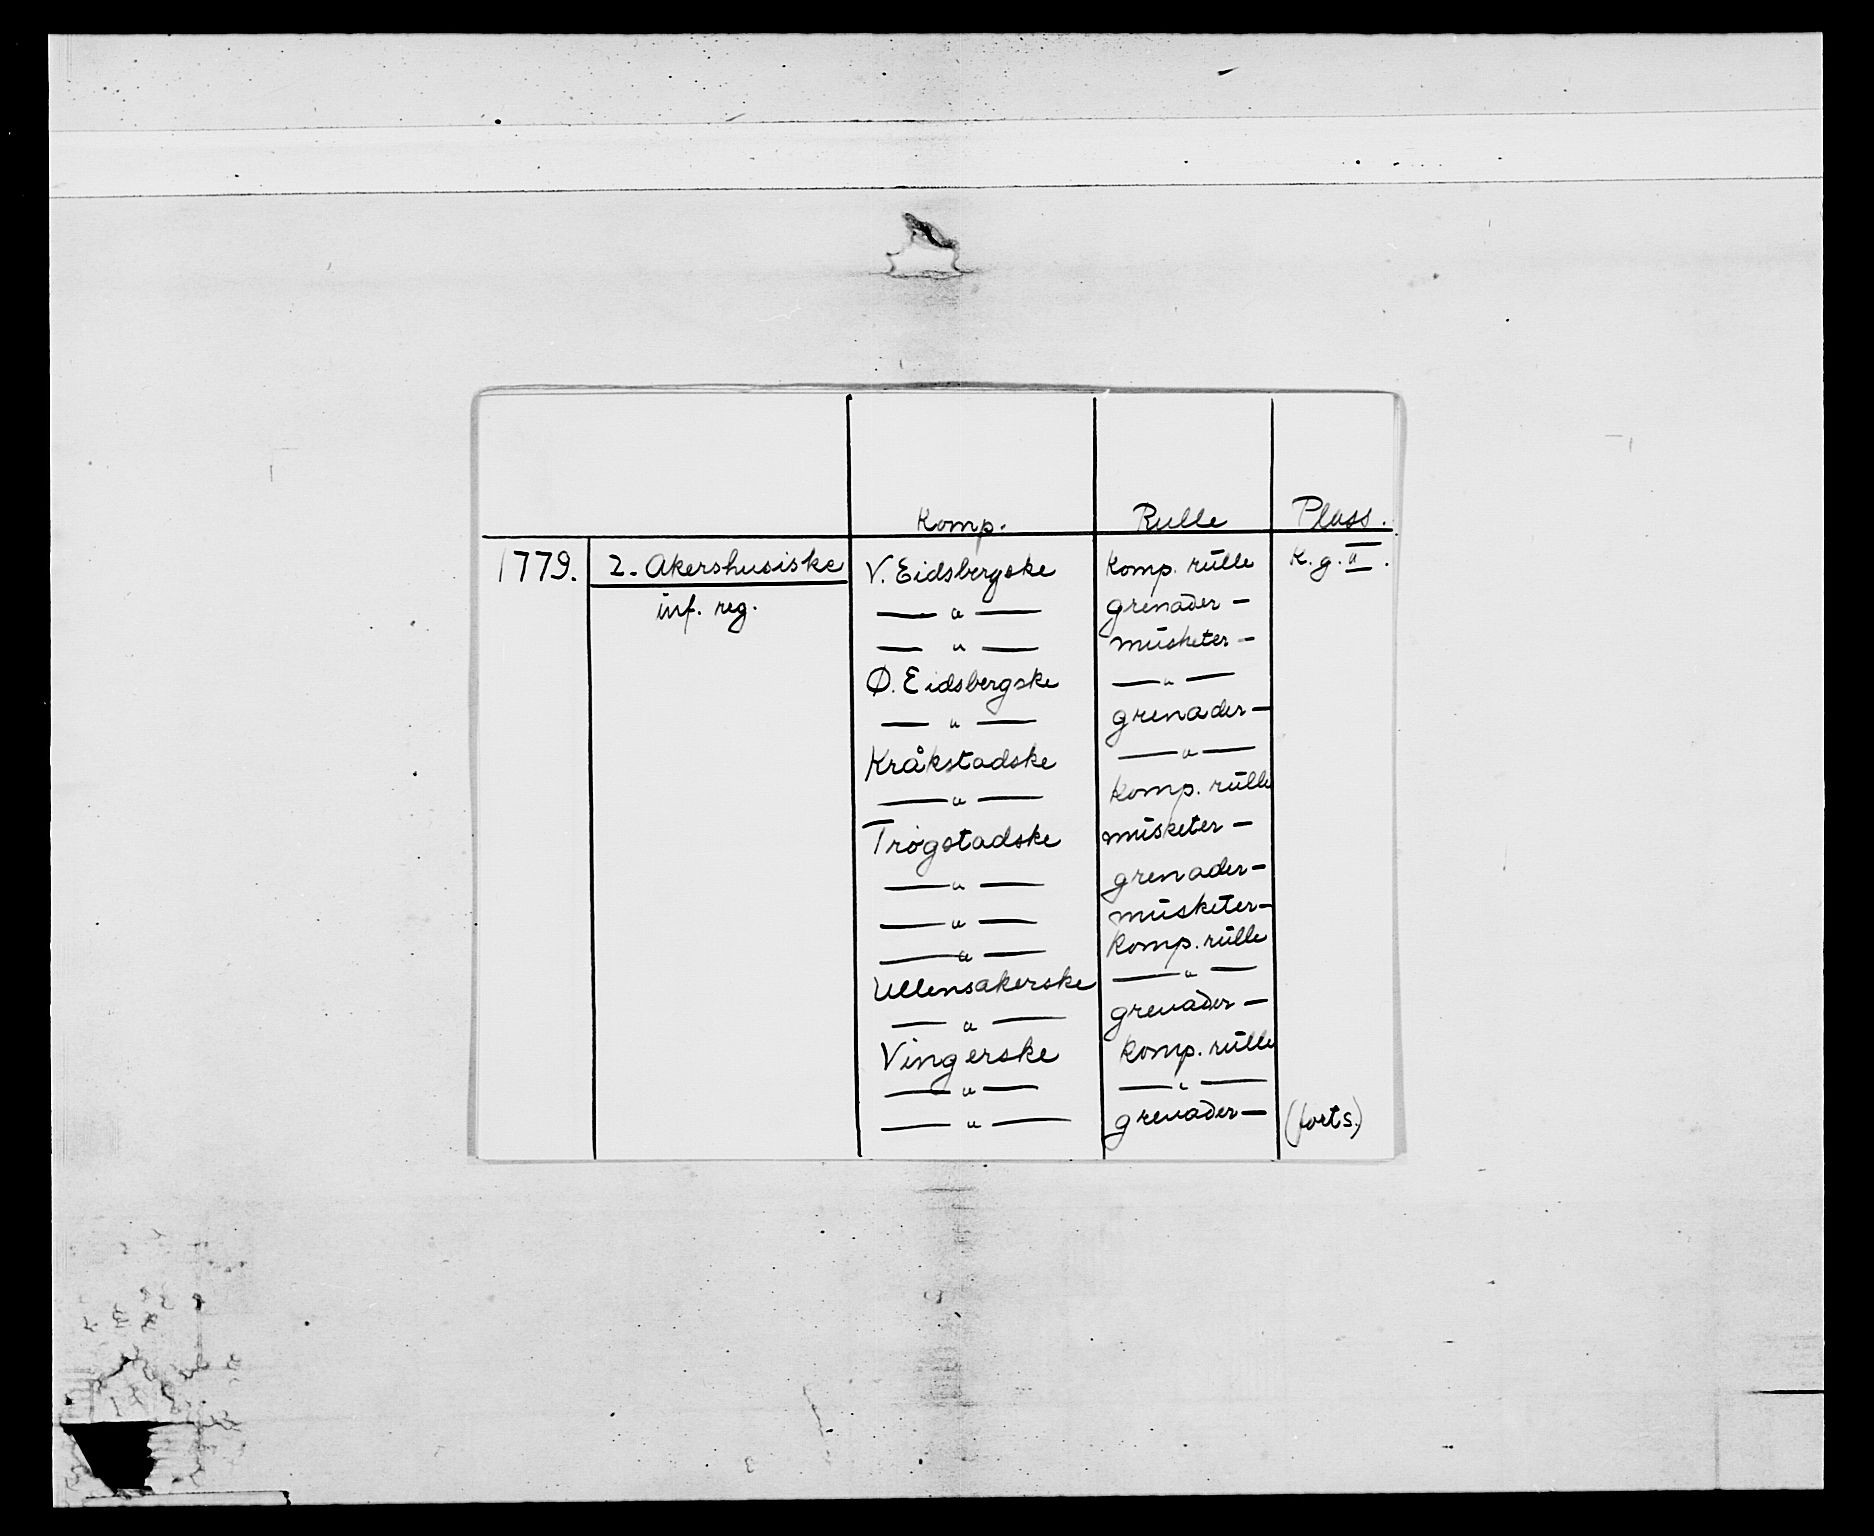 Komp. Rulle Plass.
1779. 2. Akershusiske V. Eidsbergske Komp. rulle K. g. II.
inf. reg. — " — grenader —
— " — musketer —
Ø. Eidsbergske — " —
— " — grenader —
Kråkstadske — " —
— " — Komp. rulle
Trøgstadske musketer —
— " — grenader —
— " — musketer —
— " — Komp. rulle
Ullensakerske — " —
— " — grenader —
Vingerske Komp. rulle
— " — — " —
— " — grenader — (forts.)